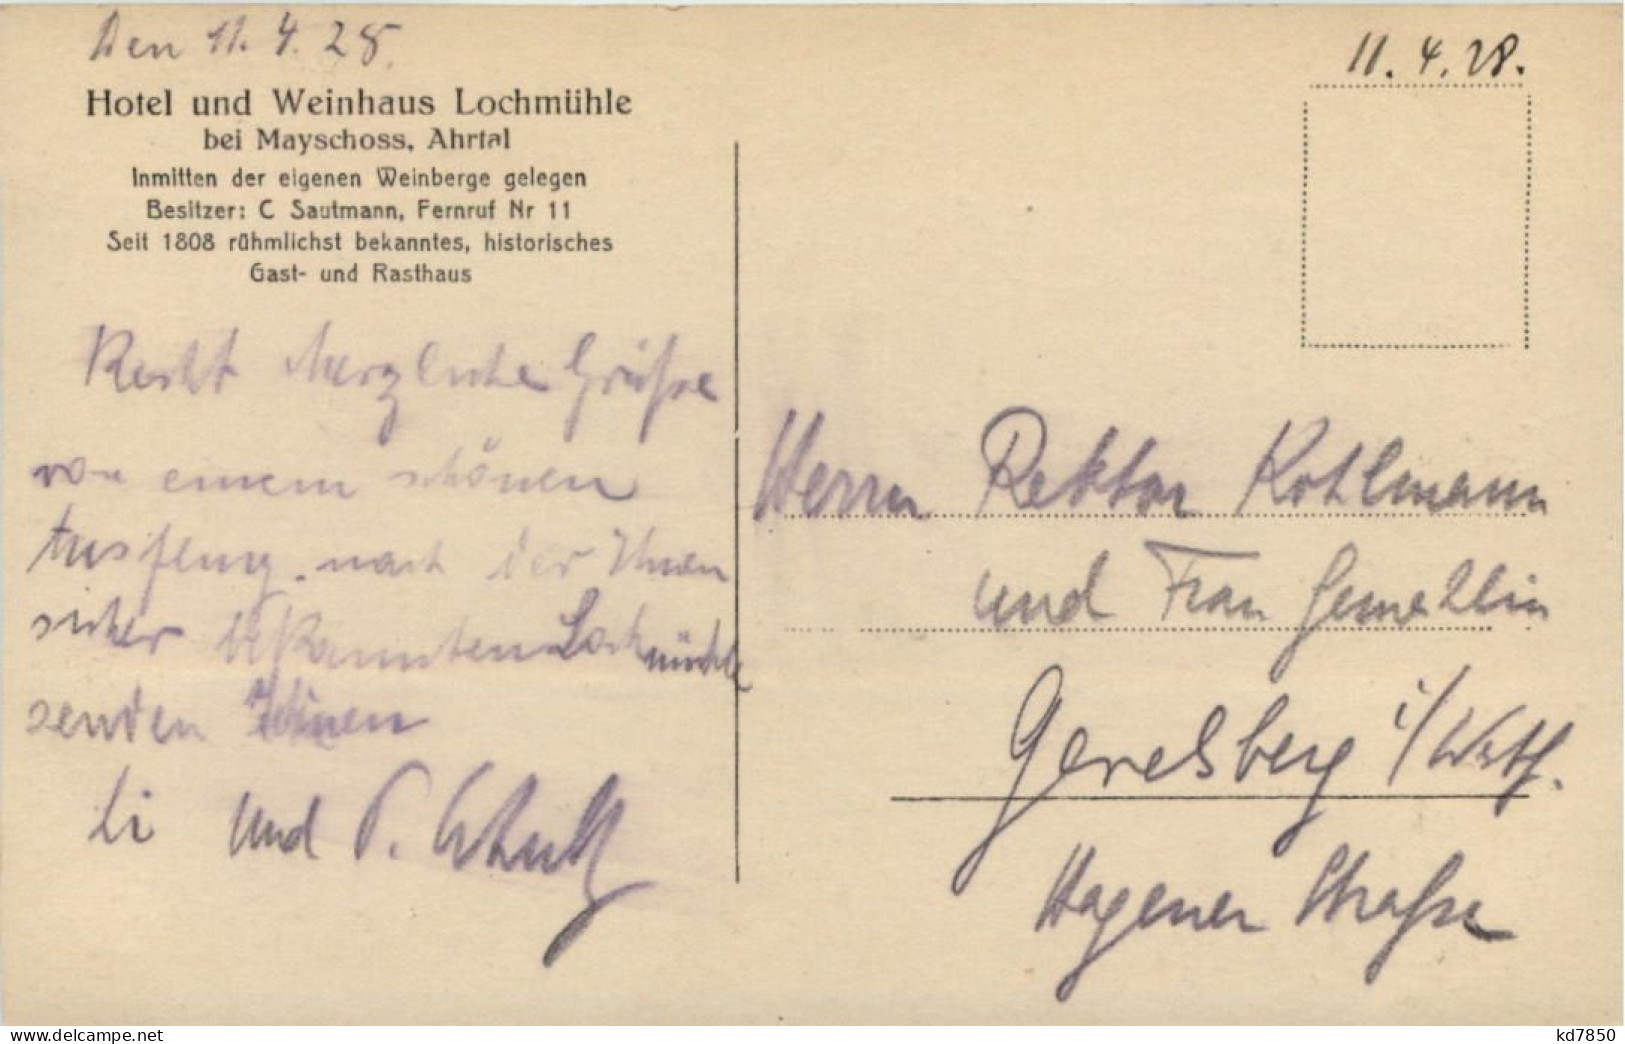 Den 11. 4. 28.
Hotel und Weinhaus Lochmühle
bei Mayschoss, Ahrtal
Inmitten der eigenen Weinberge gelegen
Besitzer: C Sautmann, Fernruf Nr 11
Seit 1808 rühmlichst bekanntes, historisches
Gast- und Rasthaus
Recht herzliche Grüße
von einem schönen
Ausflug nach der Ihnen
sicher bekannten Lochmühle
senden Ihnen
Li und P.
11. 4. 28.
Herrn Rektor Kohlmann
und Frau Gemahlin
Gevelsberg i/Westf.
Hagener Straße
www.ansichtskartenversand.com
kd7850